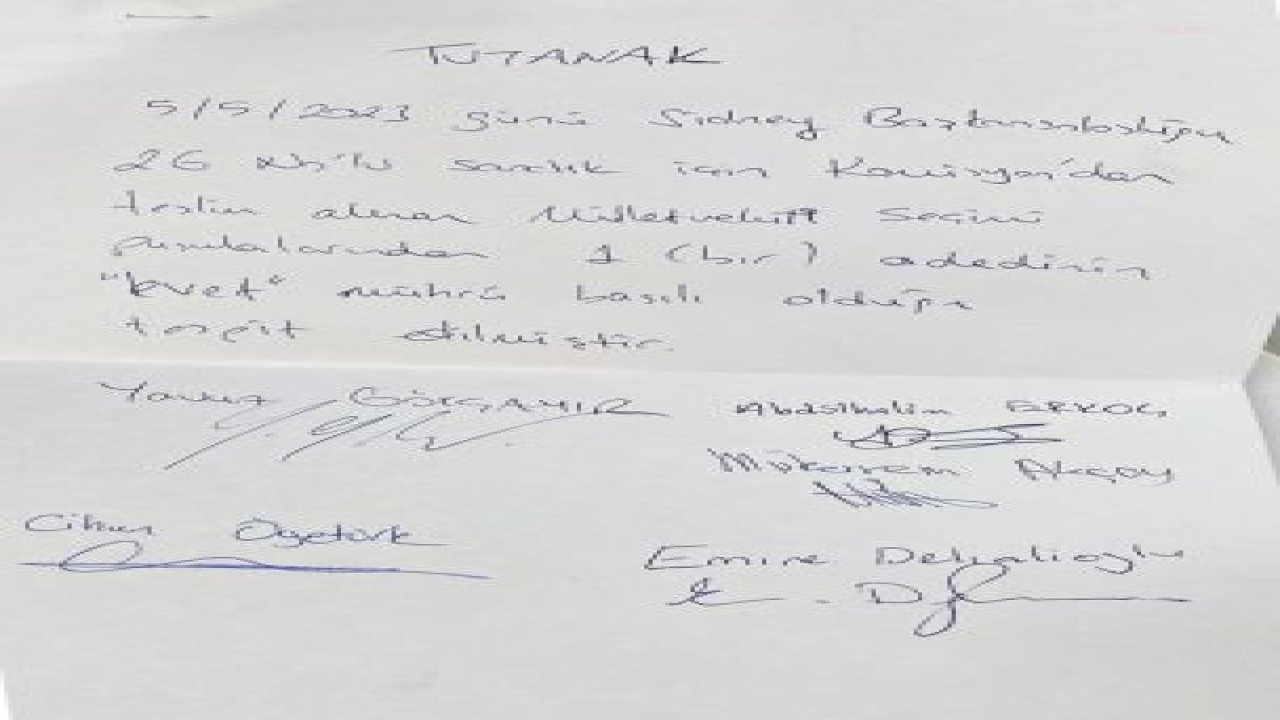 TUTANAK
5/5/2023 günü Sidney Başkonsolosluğu
26 No'lu sandık için Komisyon'dan
teslim alınan Milletvekili Seçimi
pusulalarından 1 (bir) adedinin
"evet" mührü basılı olduğu
tespit edilmiştir.
Yavuz
Abdsihalim ERKOÇ
Mükerrem Akçay
Cihan Özetürk
Emine Delialioğlu